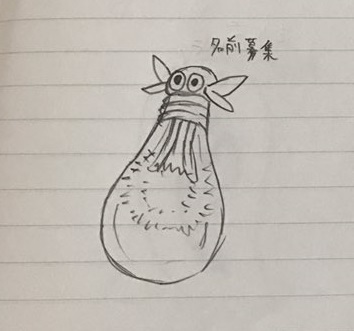 名前募集